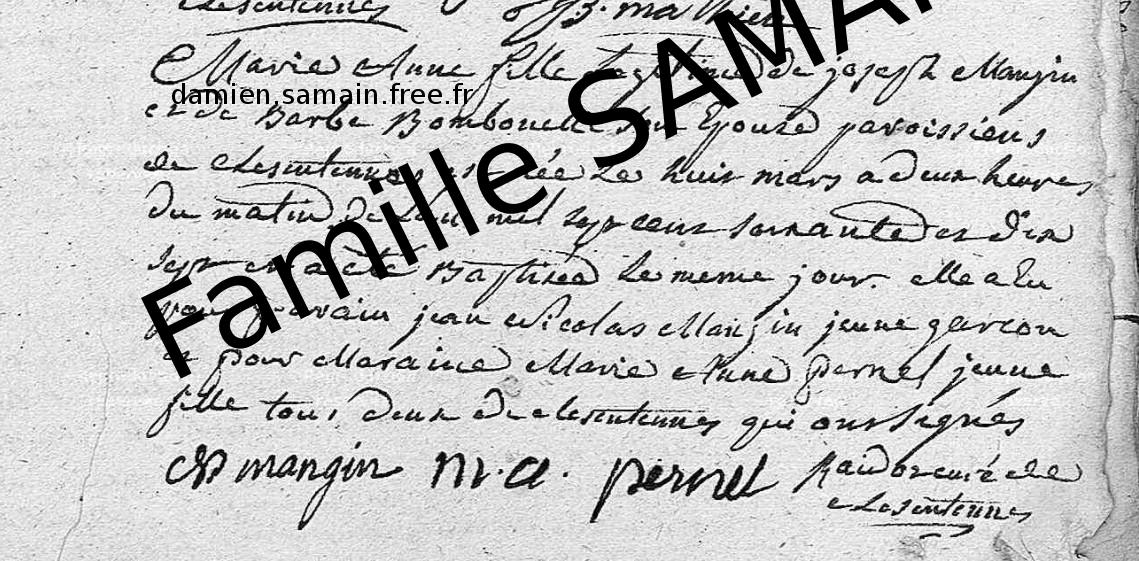 Lesseutennes J. B. mathieu
Marie Anne fille Legitime de joseph Mangin
et de Barbe Bombouelle son Epouse paroissiens
de Leseutennes est née Le huit mars a deux heures
du matin de L'an mil sept cent soixante et dix
sept et a été Baptisée Le meme jour. elle a Eu
pour parain jean Nicolas Mangin jeune garcon
et pour Maraine Marie Anne pernel jeune
fille tous deux de Leseutennes qui ont signés
mangin M. a. pernel curé de
Leseutennes
Famille SAMA
damien.samain.free.fr